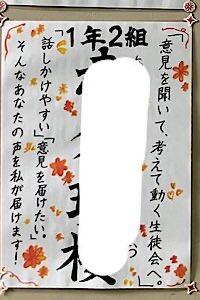 「意見を聞いて、考えて動く生徒会へ。
1年2組
「話しかけやすい」「意見を届けたい。」
そんなあなたの声を私が届けます！